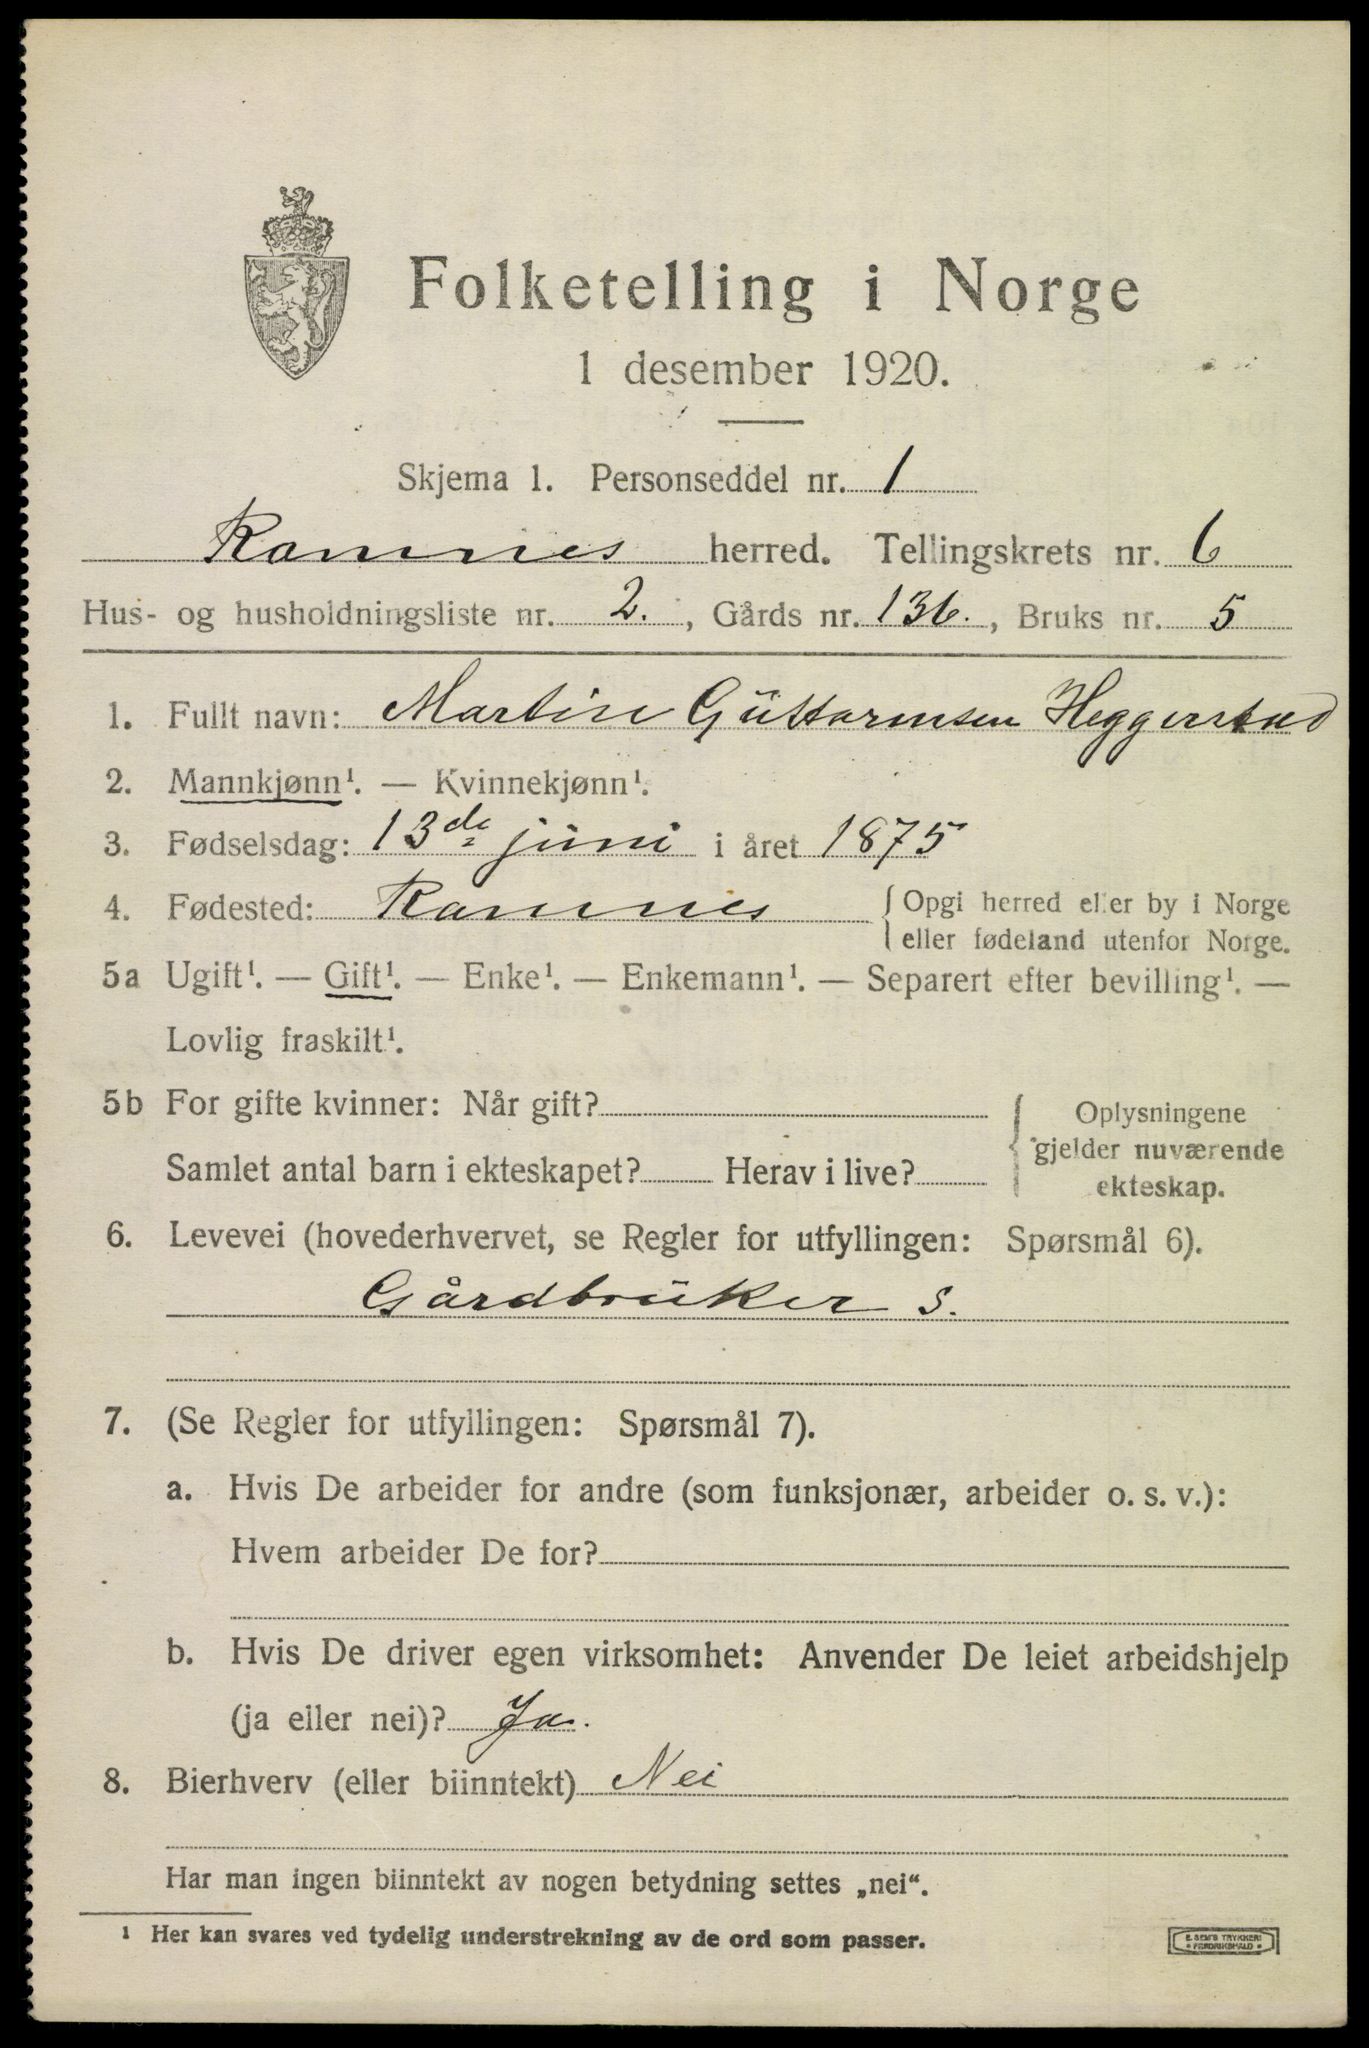 Folketelling i Norge
1 desember 1920.
Skjema 1. Personseddel nr. 1
Ramnes herred. Tellingskrets nr. 6
Hus- og husholdningsliste nr. 2., Gårds nr. 136., Bruks nr. 5
1. Fullt navn: Martin Guttormsen Heggerstad
2. Mannkjønn¹. — Kvinnekjønn¹.
3. Fødselsdag: 13de juni i året 1875
4. Fødested: Ramnes { Opgi herred eller by i Norge
eller fødeland utenfor Norge.
5a Ugift¹. — Gift¹. — Enke¹. — Enkemann¹. — Separert efter bevilling¹. —
Lovlig fraskilt¹.
5b For gifte kvinner: Når gift? { Oplysningene
gjelder nuværende
Samlet antal barn i ekteskapet? Herav i live?
ekteskap.
6. Levevei (hovederhvervet, se Regler for utfyllingen: Spørsmål 6).
Gårdbruker s.
7. (Se Regler for utfyllingen: Spørsmål 7).
a. Hvis De arbeider for andre (som funksjonær, arbeider o. s. v.):
Hvem arbeider De for?
b. Hvis De driver egen virksomhet: Anvender De leiet arbeidshjelp
(ja eller nei)? Ja.
8. Bierhverv (eller biinntekt) Nei
Har man ingen biinntekt av nogen betydning settes „nei“.
¹ Her kan svares ved tydelig understrekning av de ord som passer.
E. SEM'S TRYKKERI
FREDRIKSHALD